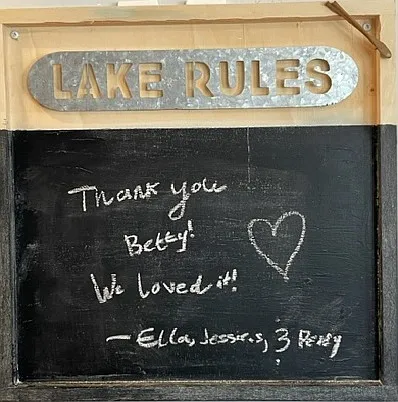 LAKE RULES
Thank you
Betty!
We loved it!
— Ella, Jessie.s, 3 Remy